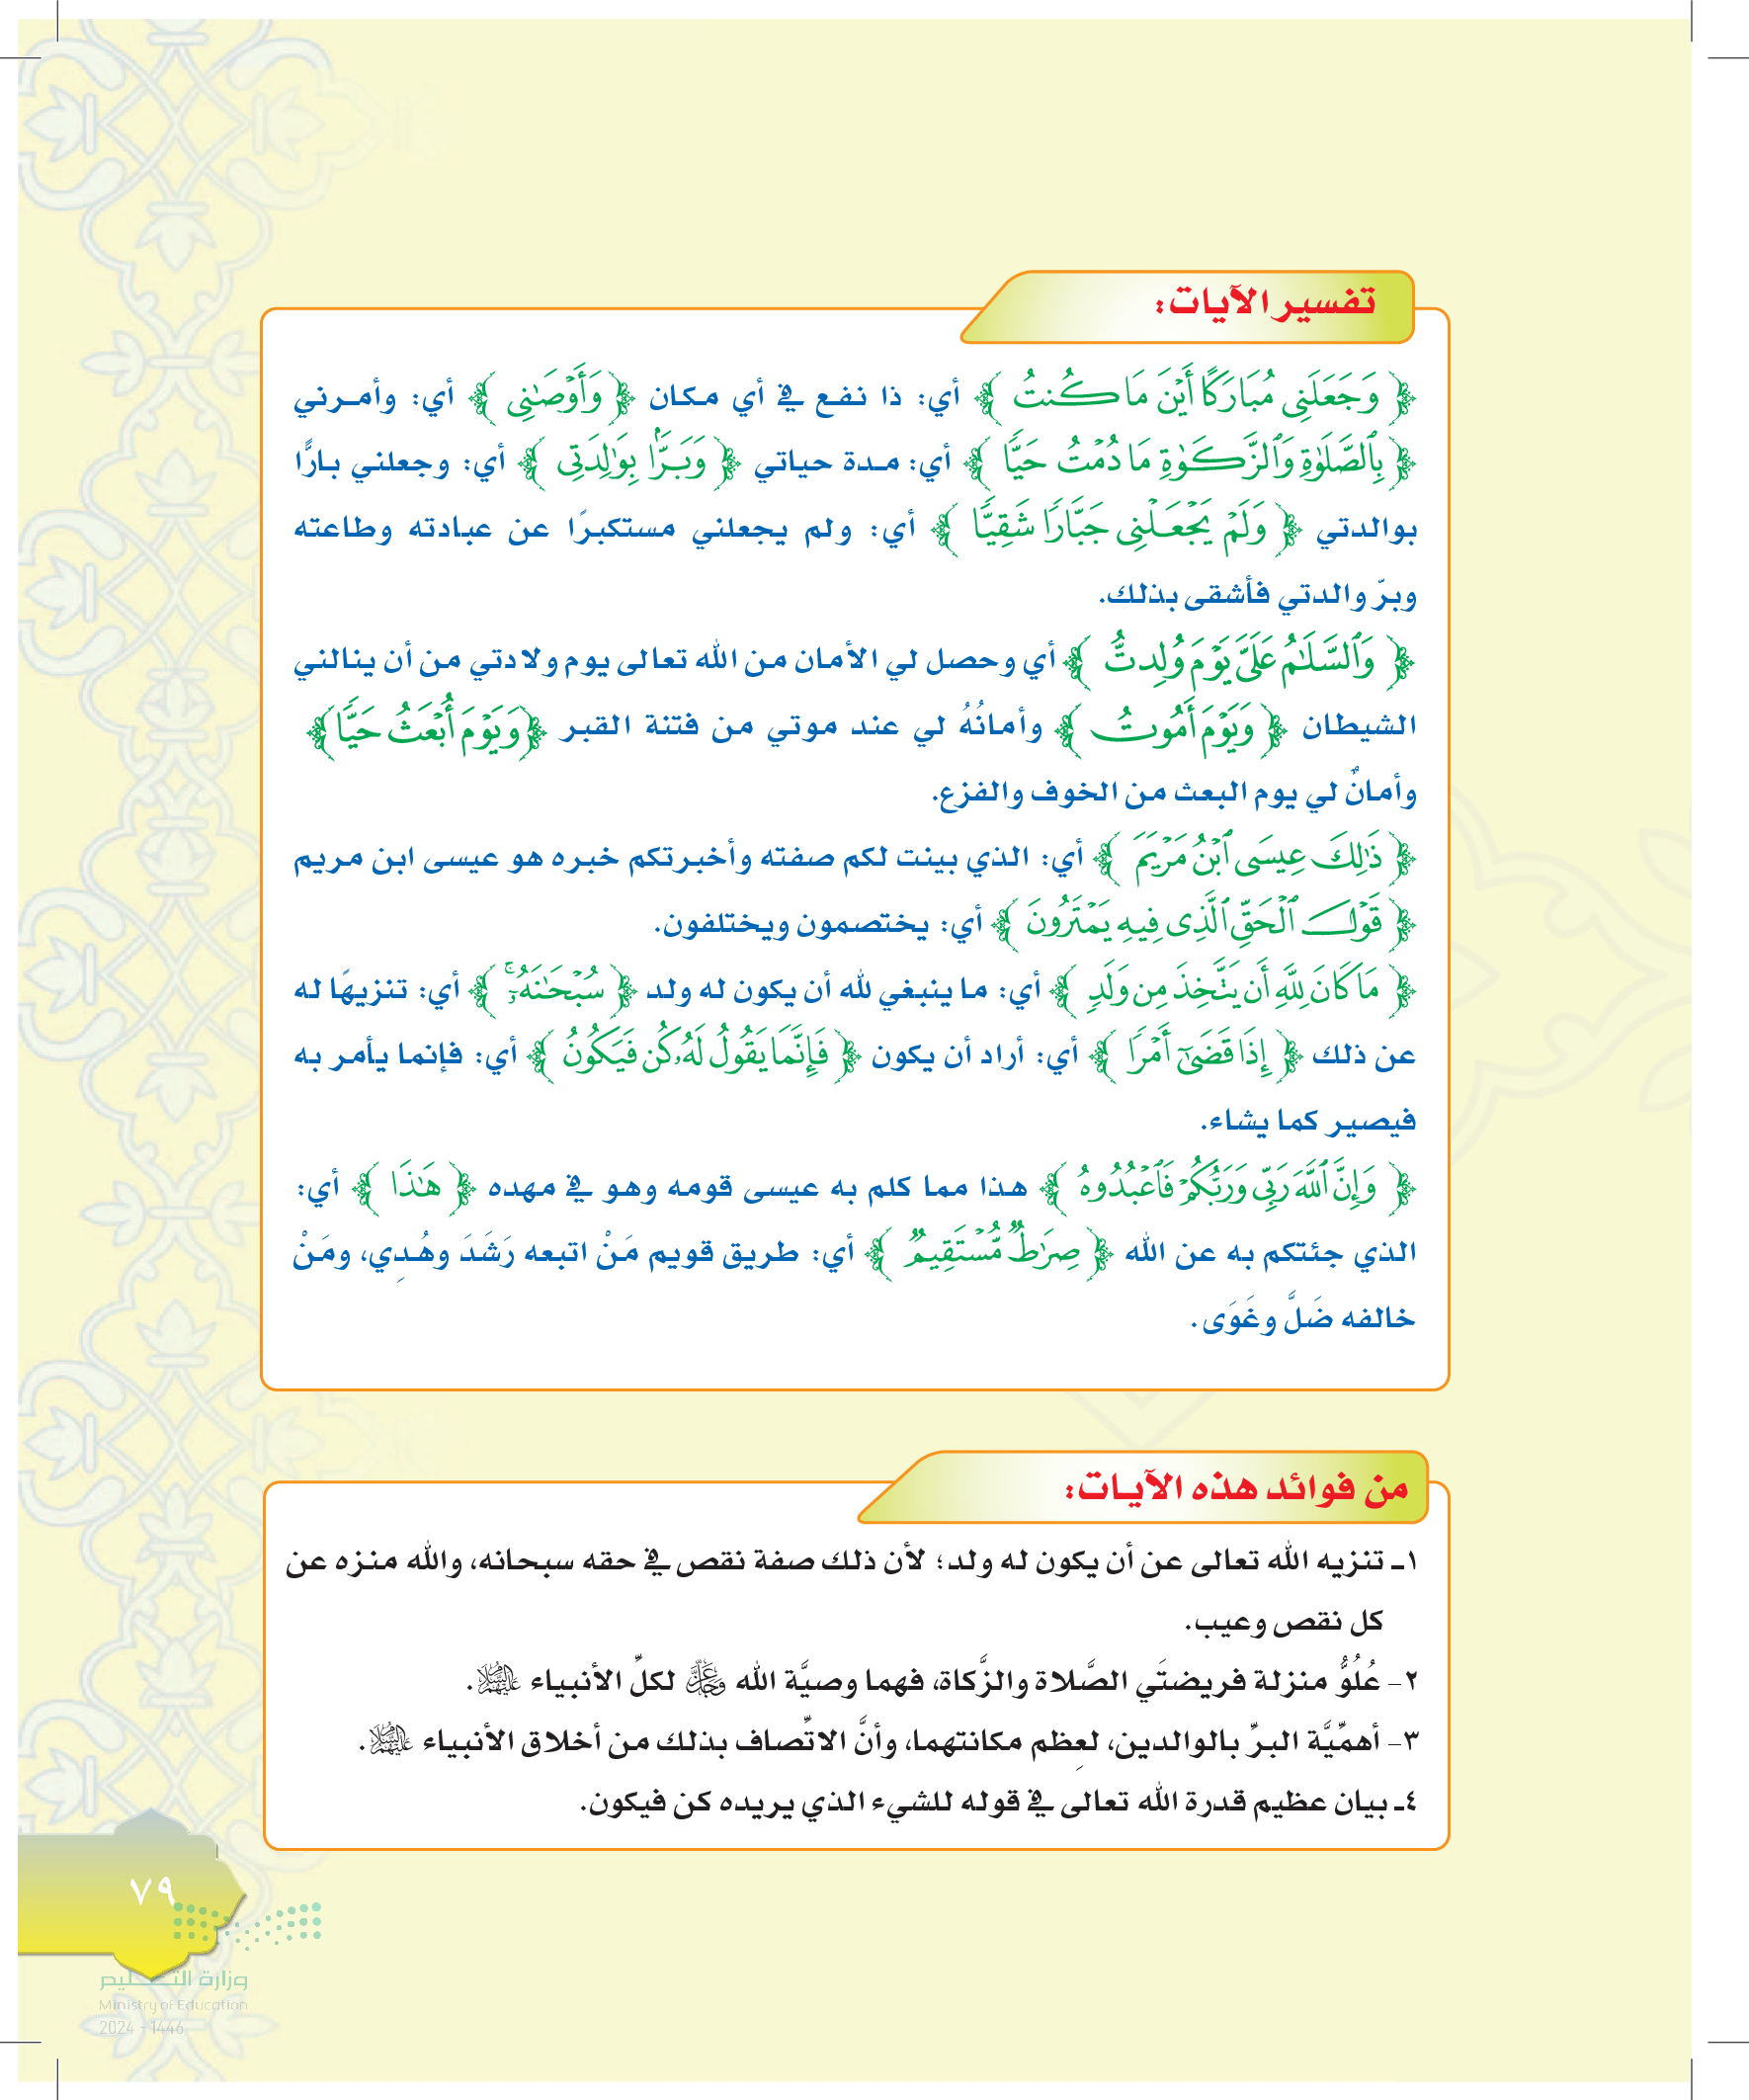 تفسير الآيات:
﴿ وَجَعَلَنِي مُبَارَكًا أَيْنَ مَا كُنتُ ﴾ أي: ذا نفع في أي مكان ﴿ وَأَوْصَٰنِي ﴾ أي: وأمرني
﴿ بِٱلصَّلَوٰةِ وَٱلزَّكَوٰةِ مَا دُمْتُ حَيًّا ﴾ أي: مدة حياتي ﴿ وَبَرًّۢا بِوَٰلِدَتِي ﴾ أي: وجعلني بارًّا
بوالدتي ﴿ وَلَمْ يَجْعَلْنِي جَبَّارًا شَقِيًّا ﴾ أي: ولم يجعلني مستكبرًا عن عبادته وطاعته
وبرّ والدتي فأشقى بذلك.
﴿ وَٱلسَّلَٰمُ عَلَيَّ يَوْمَ وُلِدتُّ ﴾ أي وحصل لي الأمان من الله تعالى يوم ولادتي من أن ينالني
الشيطان ﴿ وَيَوْمَ أَمُوتُ ﴾ وأمانُهُ لي عند موتي من فتنة القبر ﴿وَيَوْمَ أُبْعَثُ حَيًّا﴾
وأمانٌ لي يوم البعث من الخوف والفزع.
﴿ ذَٰلِكَ عِيسَى ٱبْنُ مَرْيَمَ ﴾ أي: الذي بينت لكم صفته وأخبرتكم خبره هو عيسى ابن مريم
﴿ قَوْلَ ٱلْحَقِّ ٱلَّذِي فِيهِ يَمْتَرُونَ ﴾ أي: يختصمون ويختلفون.
﴿ مَا كَانَ لِلَّهِ أَن يَتَّخِذَ مِن وَلَدٍ ﴾ أي: ما ينبغي لله أن يكون له ولد ﴿ سُبْحَٰنَهُۥٓ ۚ ﴾ أي: تنزيهًا له
عن ذلك ﴿ إِذَا قَضَىٰٓ أَمْرًا ﴾ أي: أراد أن يكون ﴿ فَإِنَّمَا يَقُولُ لَهُۥ كُن فَيَكُونُ ﴾ أي: فإنما يأمر به
فيصير كما يشاء.
﴿ وَإِنَّ ٱللَّهَ رَبِّي وَرَبُّكُمْ فَٱعْبُدُوهُ ﴾ هذا مما كلم به عيسى قومه وهو في مهده ﴿ هَٰذَا ﴾ أي:
الذي جئتكم به عن الله ﴿ صِرَٰطٌ مُّسْتَقِيمٌ ﴾ أي: طريق قويم مَنْ اتبعه رَشَدَ وهُدِي، ومَنْ
خالفه ضَلَّ وغَوَى.
من فوائد هذه الآيات:
١ـ تنزيه الله تعالى عن أن يكون له ولد؛ لأن ذلك صفة نقص في حقه سبحانه، والله منزه عن
كل نقص وعيب.
٢- عُلُوُّ منزلة فريضتَي الصَّلاة والزَّكاة، فهما وصيَّة الله عَزَّ وَجَلَّ لكلِّ الأنبياء عَلَيْهِمُ السَّلَامُ.
٣- أهمِّيَّة البرِّ بالوالدين، لعِظم مكانتهما، وأنَّ الاتِّصاف بذلك من أخلاق الأنبياء عَلَيْهِمُ السَّلَامُ.
٤ـ بيان عظيم قدرة الله تعالى في قوله للشيء الذي يريده كن فيكون.
٧٩
وزارة التعليم
Ministry of Education
2024 - 1446